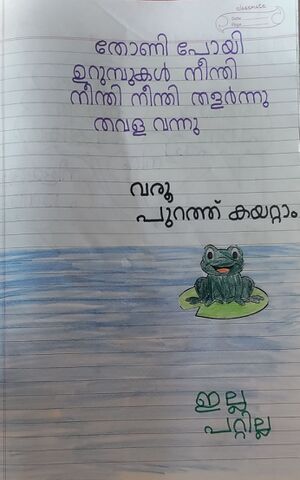 classmate
Date
Page
തോണി പോയി
ഉറുമ്പുകൾ നീന്തി
നീന്തി നീന്തി തളർന്നു
തവള വന്നു
വരൂ
പുറത്ത് കയറ്റാം
ഇല്ല
പറ്റില്ല